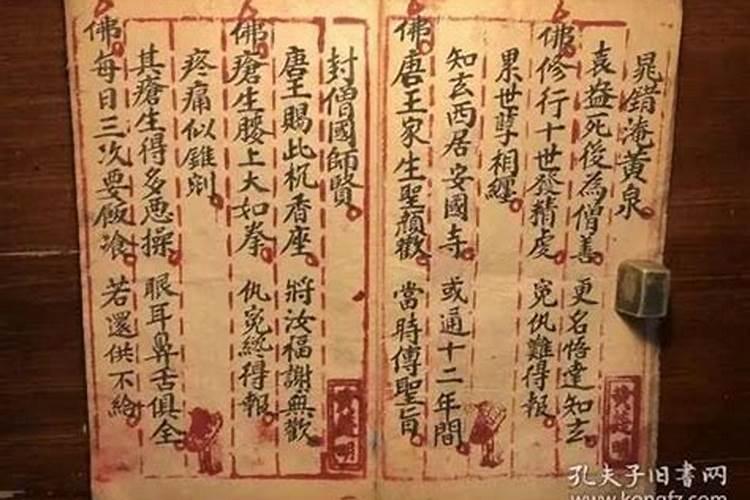 晁錯渰黄泉
袁盎死後為僧善 更名悟達知玄
佛修行十世發精虔 寃仇難得報
累世孽相纏
知玄西居安國寺 或通十二年間
佛唐王家生聖顏歡 當時傳聖旨
封僧國師賢
唐王賜此杌香座 將汝福謝無歡
佛瘡生膝上大如拳 仇寃終得報
疼痛似錐剜
其瘡生得多恶操 眼耳鼻舌俱全
佛每日三次要飯飡 若還供不給
孔夫子旧書网